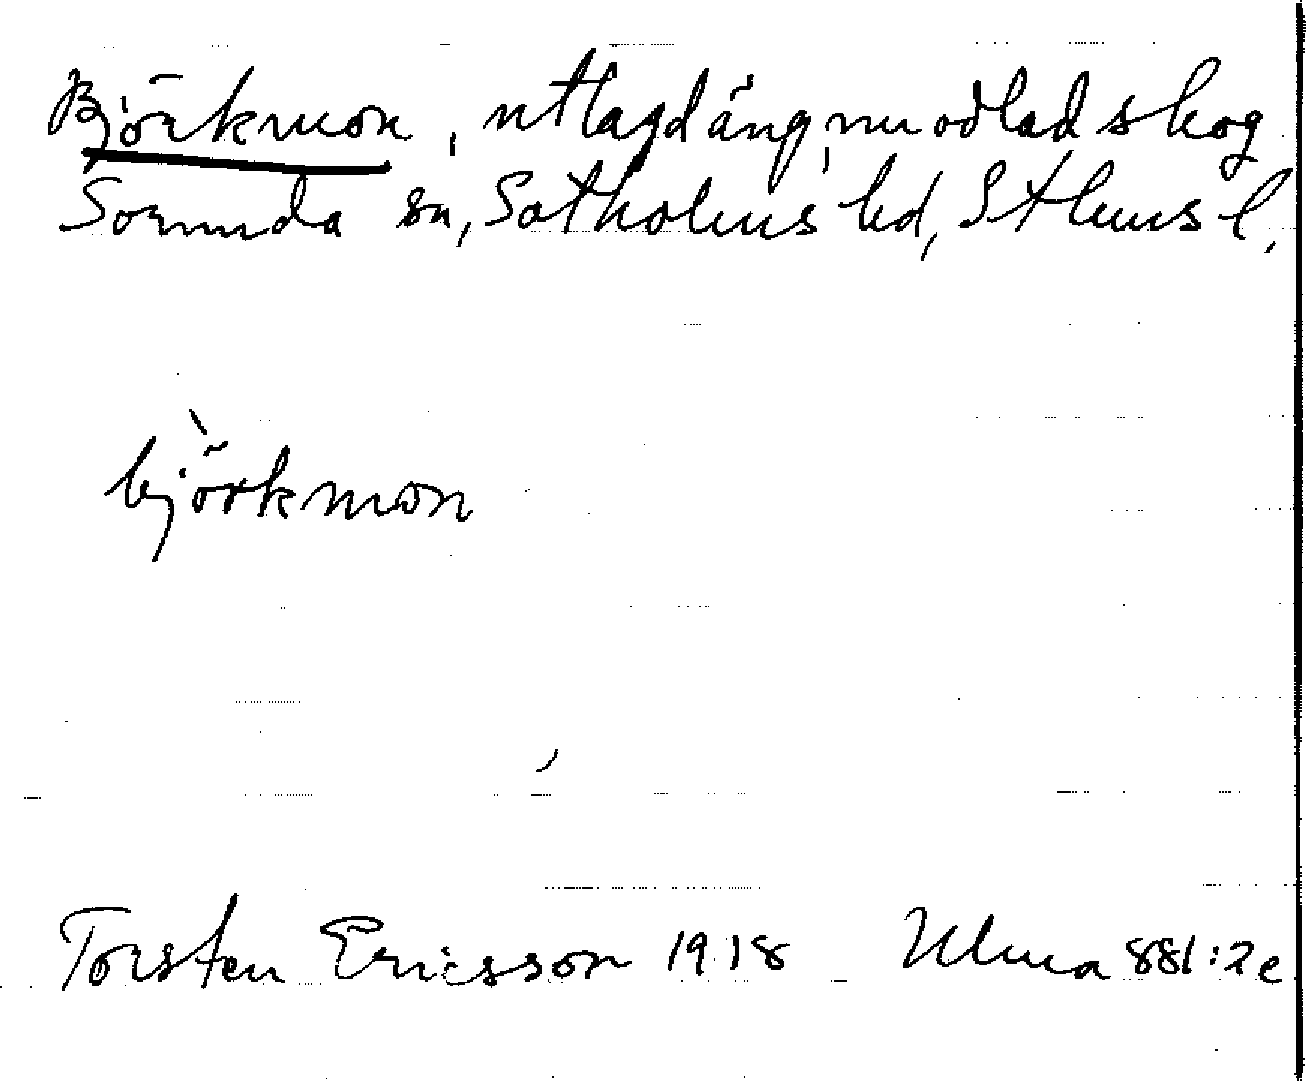 Björkmon, utlagd äng, nu odlad skog
Sorunda sn, Sotholms hd, Sthlms l.
bjö̀rkmon
Torsten Ericsson 1918 Ulma 881:2e